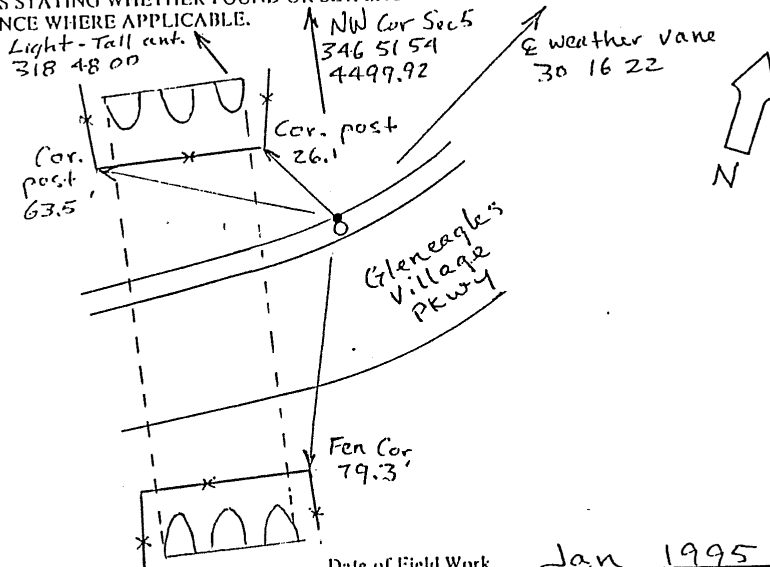 STATING WHETHER FOUND OR
NCE WHERE APPLICABLE.
Light-Tall ant.
318 48 00
NW Cor Sec 5
346 51 54
4499.92
℄ weather vane
30 16 22
Cor. post
26.1
Cor.
post
63.5'
N
Gleneagles
Village
PKWY
Fen Cor
79.3'
Date of Field Work
Jan 1995